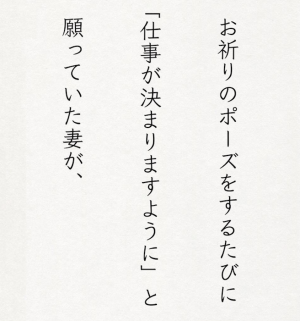 お祈りのポーズをするたびに
「仕事が決まりますように」と
願っていた妻が、